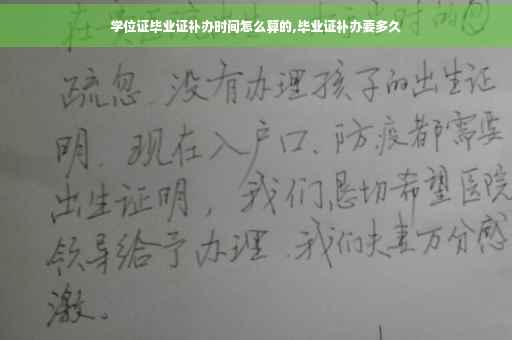 学位证毕业证补办时间怎么算的,毕业证补办要多久
疏忽、没有办理孩子的出生证
明、现在入户口、防疫都需要
出生证明，我们恳切希望医院
领导给予办理、我们夫妻万分感
激。